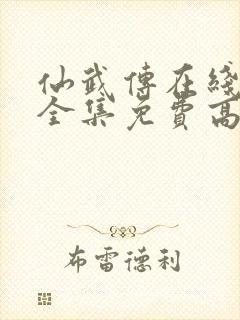 仙武傳在綫
全集免費高
布雷德利